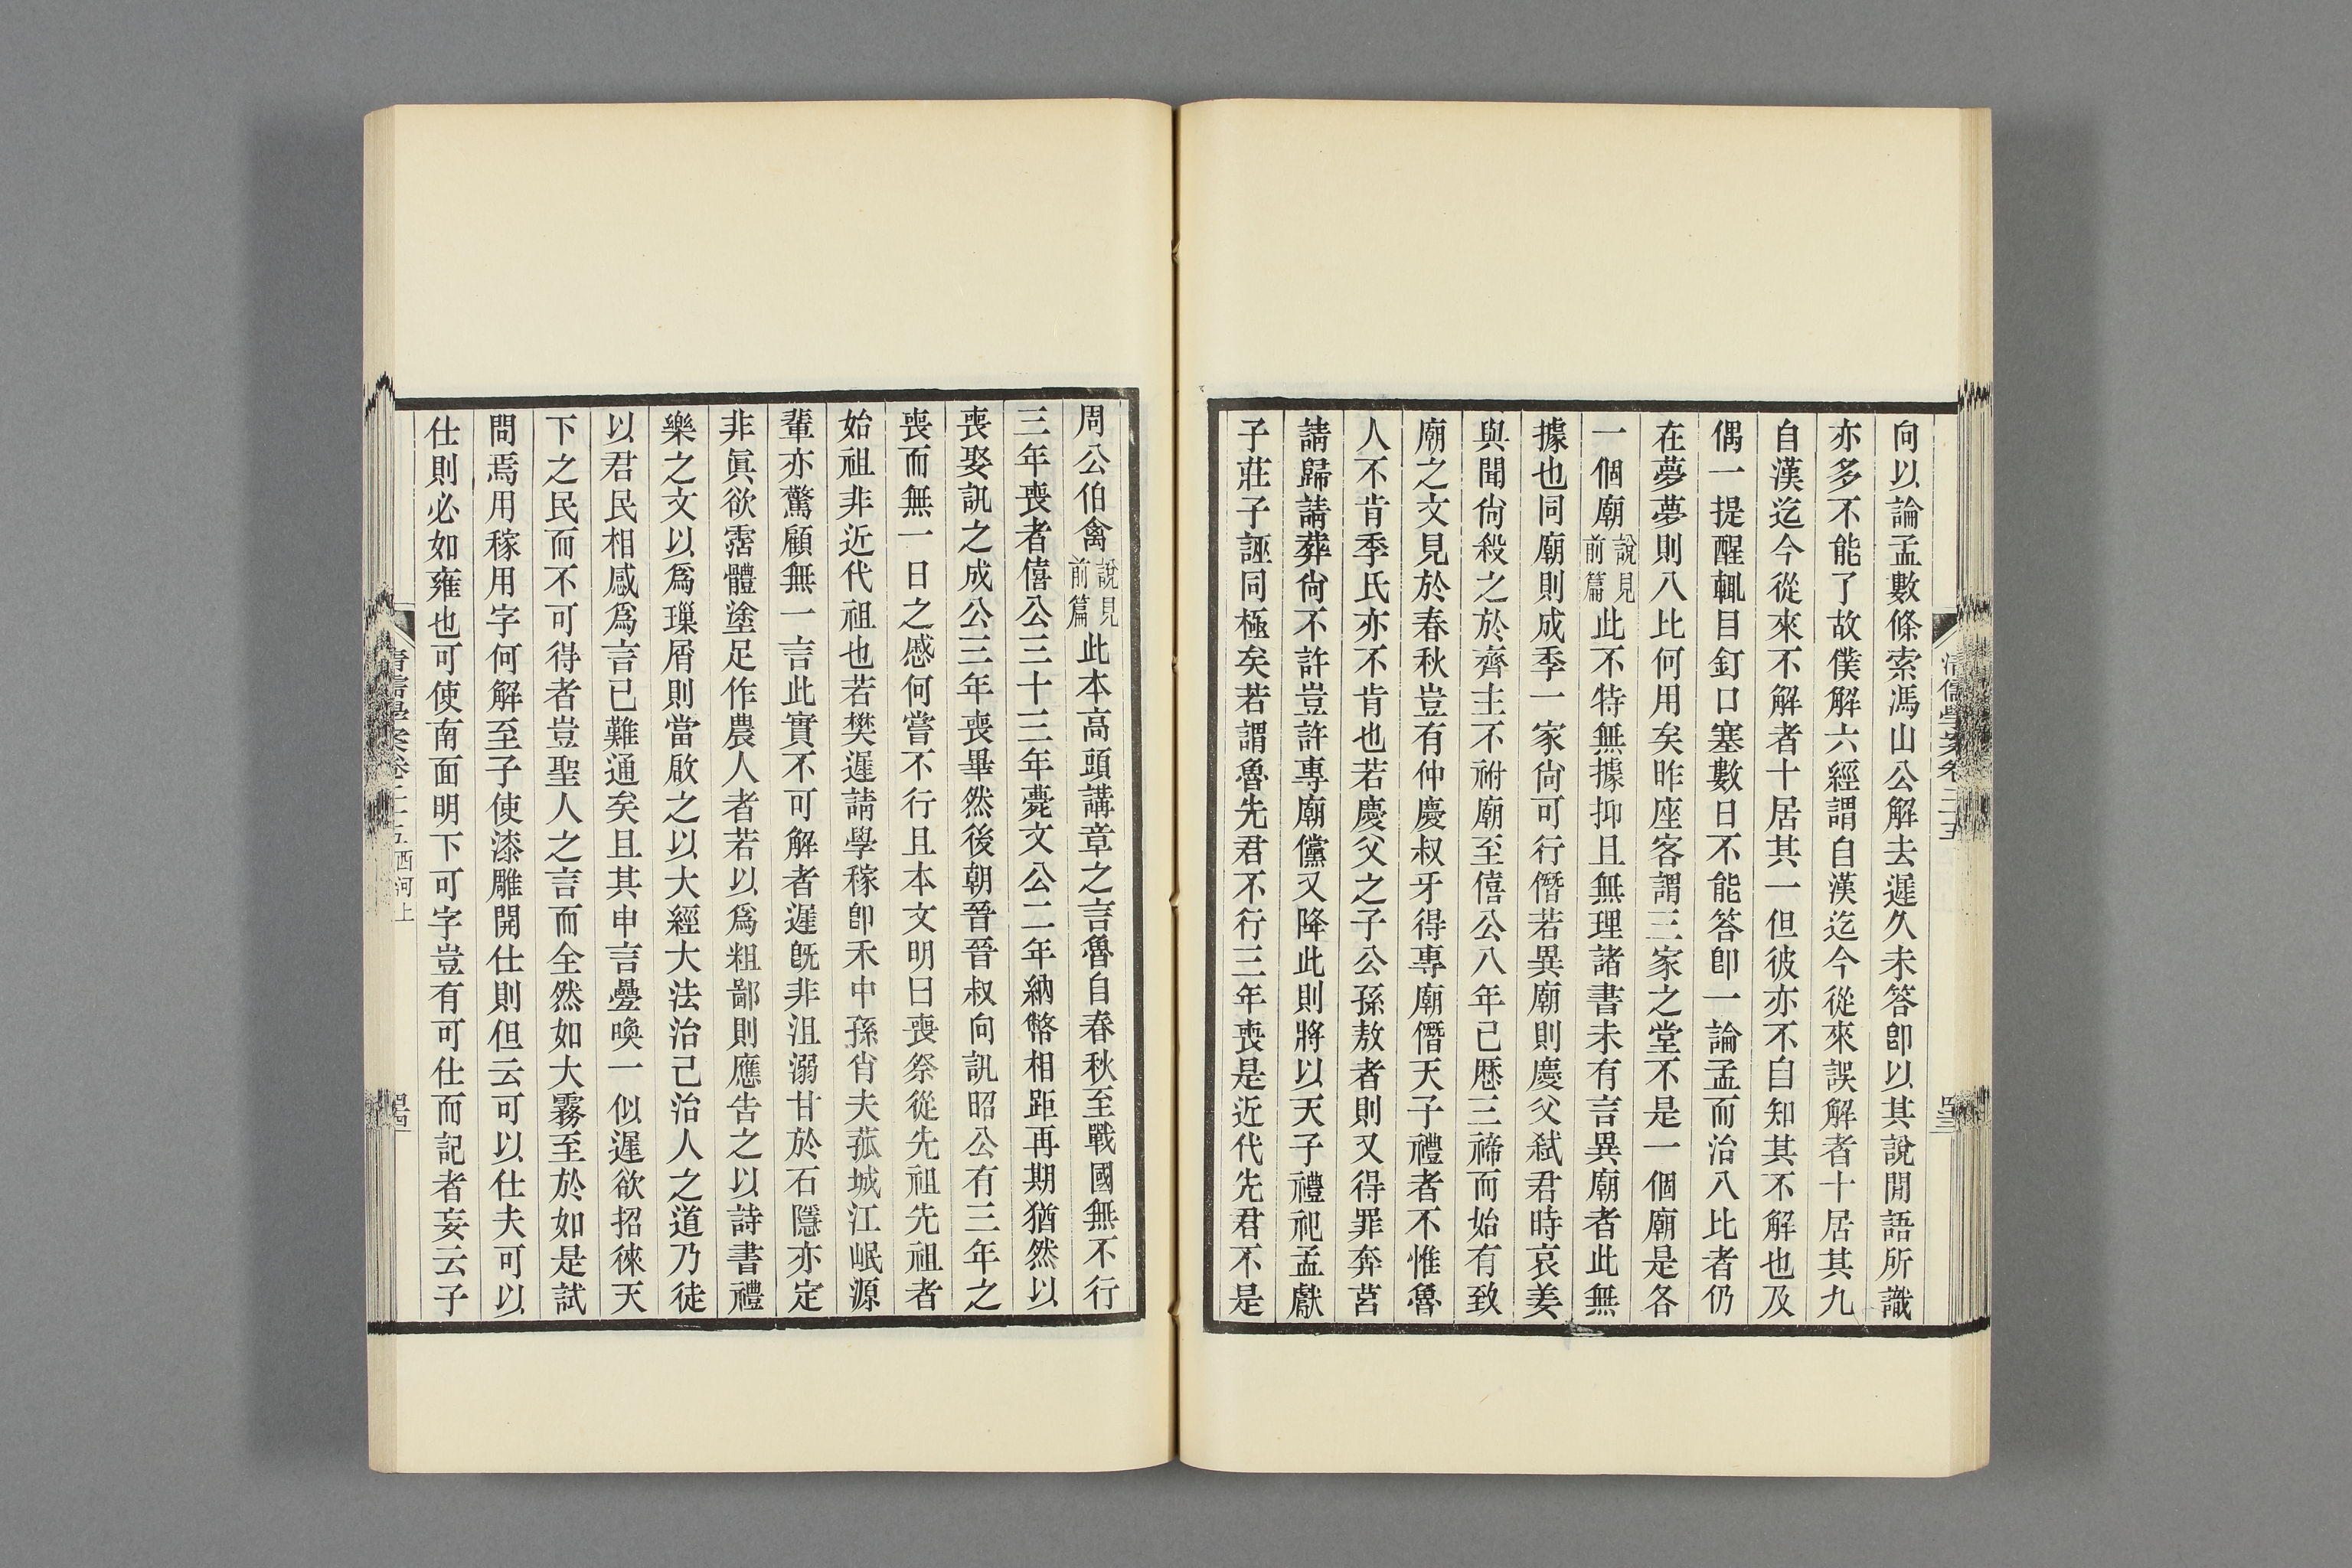 向以論孟數條索馮山公解去遲久未答卽以其說閒語所識
亦多不能了故僕解六經謂自漢迄今從來誤解者十居其九
自漢迄今從來不解者十居其一但彼亦不自知其不解也及
偶一提醒輒目釘口塞數日不能答卽一論孟而治八比者仍
在夢夢則八比何用矣昨座客謂三家之堂不是一個廟是各
一個廟說見前篇此不特無據抑且無理諸書未有言異廟者此無
據也同廟則成季一家尙可行僭若異廟則慶父弑君時哀姜
與聞尙殺之於齊主不祔廟至僖公八年已歷三禘而始有致
廟之文見於春秋豈有仲慶叔牙得專廟僭天子禮者不惟魯
人不肯季氏亦不肯也若慶父之子公孫敖者則又得罪奔莒
請歸請葬尙不許豈許專廟儻又降此則將以天子禮祀孟獻
子莊子誣罔極矣若謂魯先君不行三年喪是近代先君不是
周公伯禽說見前篇此本高頭講章之言魯自春秋至戰國無不行
三年喪者僖公三十三年薨文公二年納幣相距再期猶然以
喪娶訊之成公三年喪畢然後朝晉晉叔向訊昭公有三年之
喪而無一日之慼何嘗不行且本文明曰喪祭從先祖先祖者
始祖非近代祖也若樊遲請學稼卽禾中孫肖夫菰城江岷源
輩亦驚顧無一言此實不可解者遲旣非沮溺甘於石隱亦定
非眞欲霑體塗足作農人者若以爲粗鄙則應告之以詩書禮
樂之文以爲璅屑則當啟之以大經大法治己治人之道乃徒
以君民相感爲言已難通矣且其申言疊喚一似遲欲招徠天
下之民而不可得者豈聖人之言而全然如大霧至於如是試
問焉用稼用字何解至子使漆雕開仕則但云可以仕夫可以
仕則必如雍也可使南面明下可字豈有可仕而記者妄云子
清儒學案卷二十五 西河上
四十四